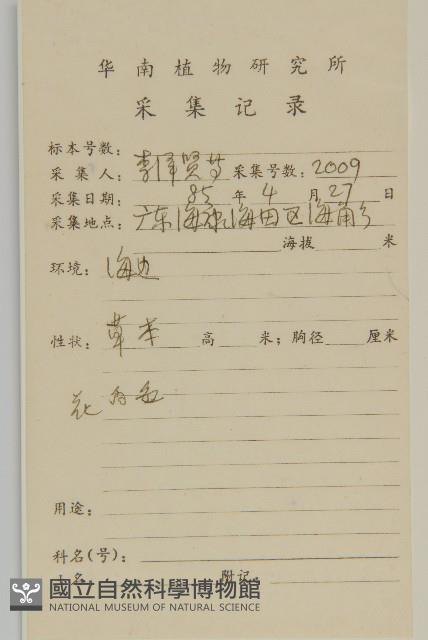 华南植物研究所
采集记录
标本号数:
采集人: 李泽贤等 采集号数: 2009
采集日期: 85 年 4 月 27 日
采集地点: 广东海康海田区海角
海拔 米
环境: 海边
性状: 草本 高 米; 胸径 厘米
花白色
用途:
科名(号):
附记:
國立自然科學博物館
NATIONAL MUSEUM OF NATURAL SCIENCE